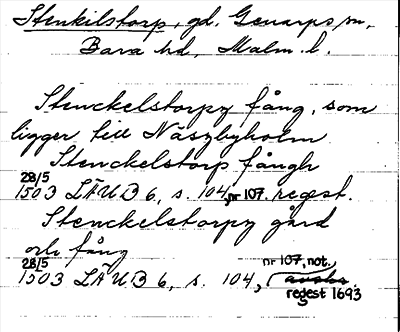 Stenkilstorp, gd. Genarps sn,
Bara hd, Malm. l.
Stenckelstorpz fång, som
ligger till Näszbyholm
Stenckelstorp fångh
28/5
1503 LÄUB 6, s. 104, nr 107. regest.
Stenckelstorpz gård
och fång
28/5 nr 107, not.
1503 LÄUB 6, s. 104,
regest 1693